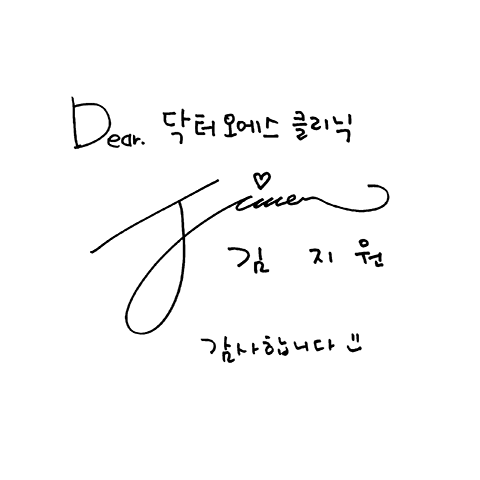 Dear. 닥터오에스 클리닉
Jiwon
김 지 원
감사합니다